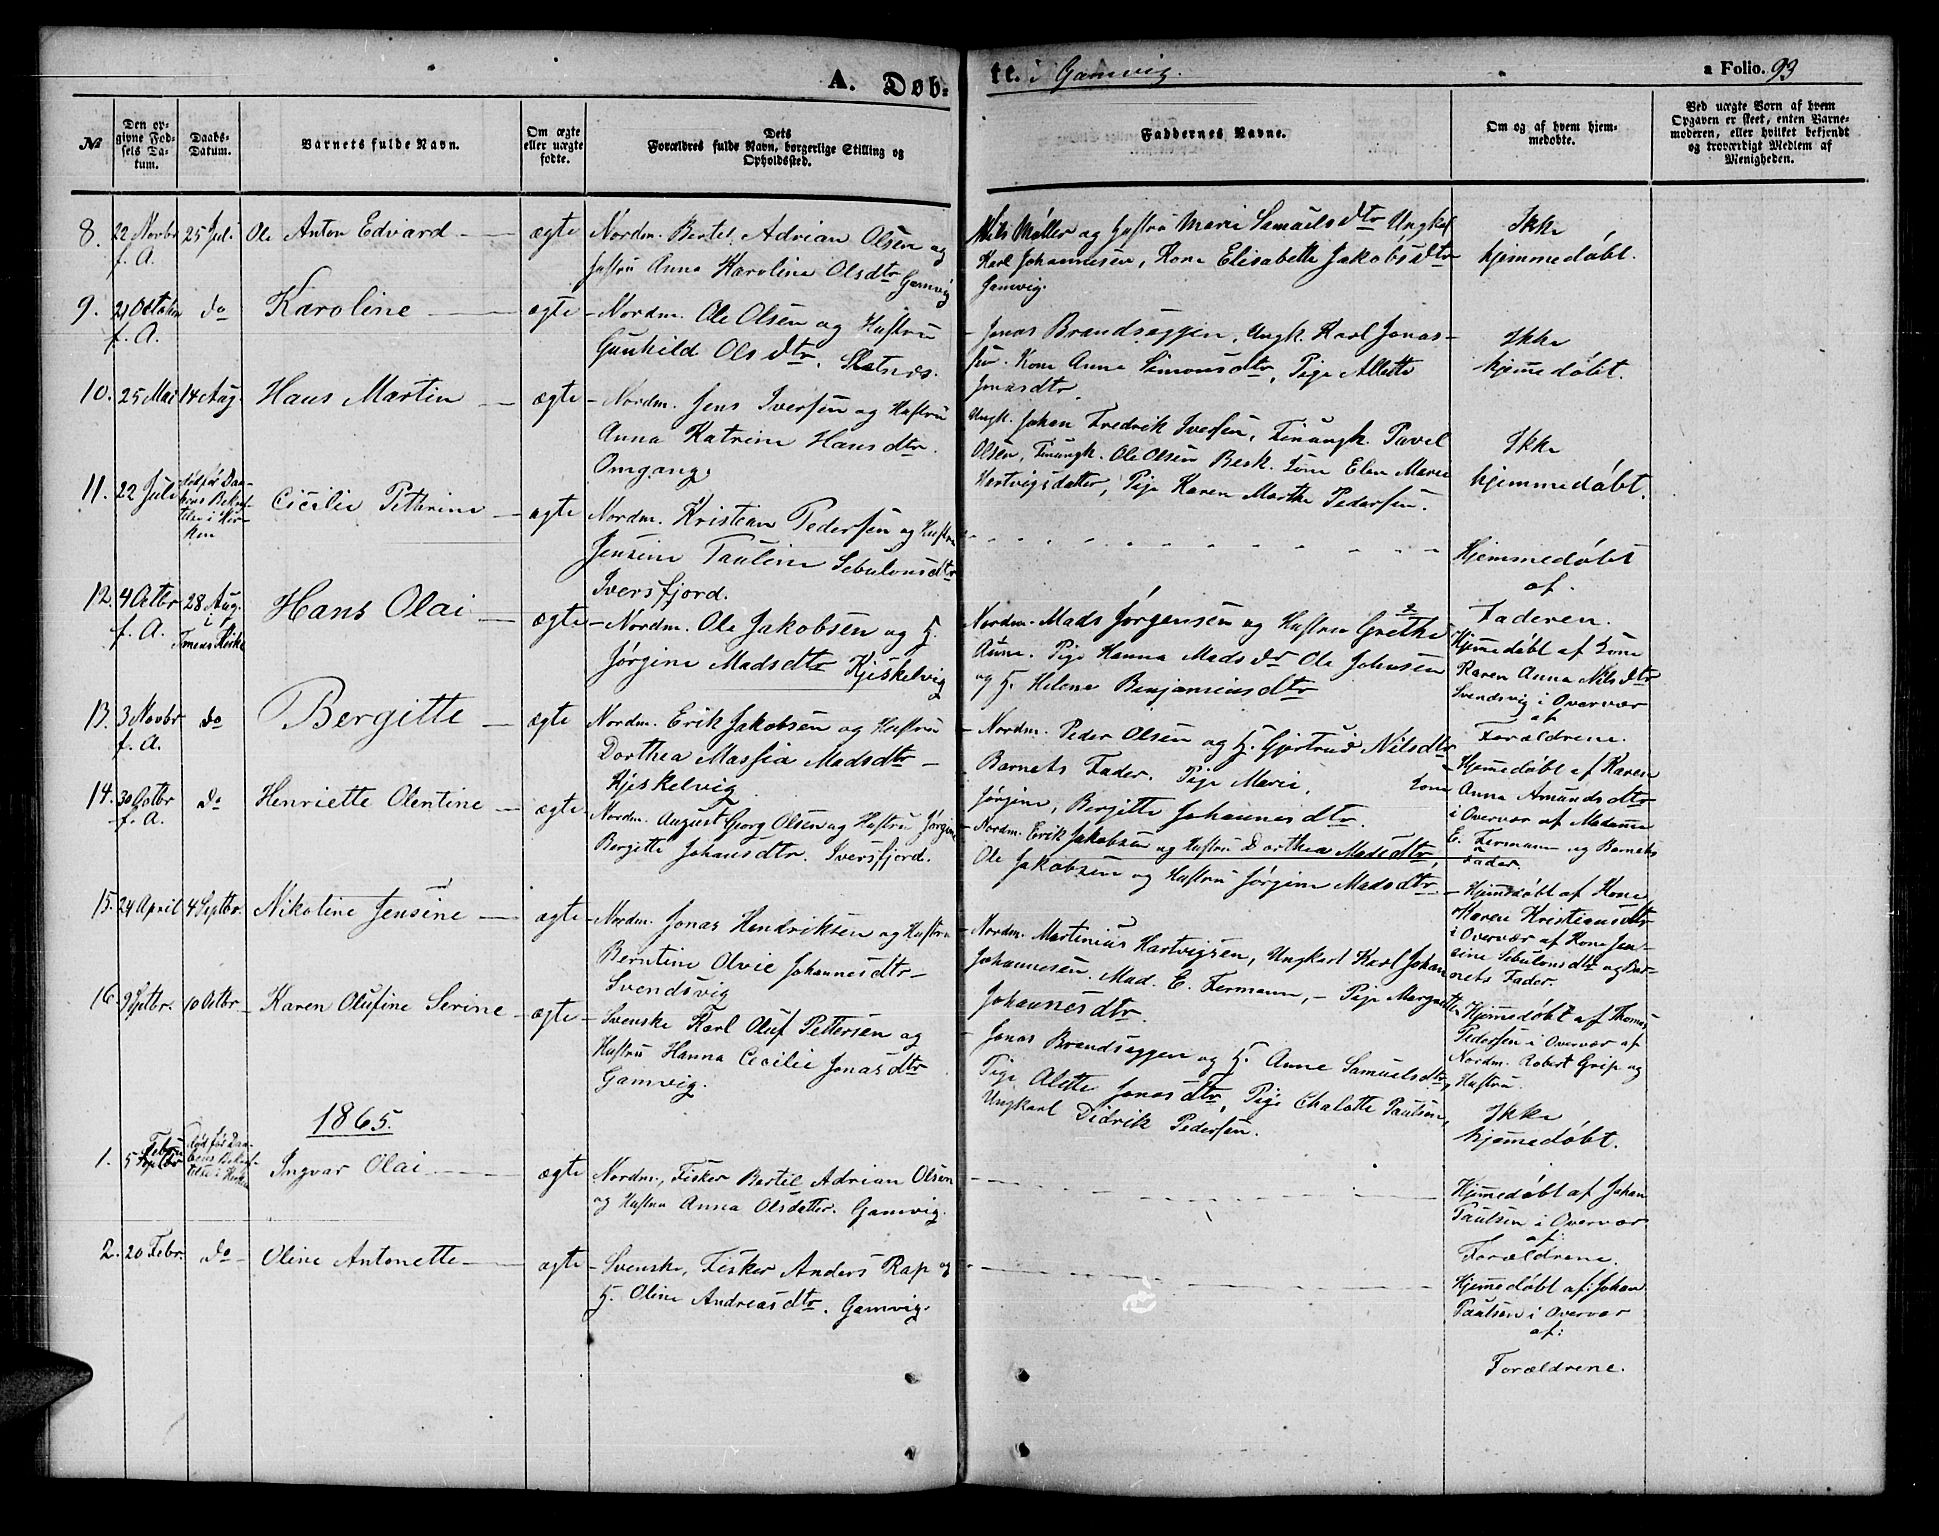 A. Døb-
te. i Gamvig.
a Folio. 93
№
Den op-
givne Fød-
sels Da-
tum.
Daabs-
Datum.
Barnets fulde Navn.
Om ægte
eller uægte
fødte.
Dets
Forældres fulde Navn, borgerlige Stilling og
Opholdssted.
Faddernes Navne.
Om og af hvem hjem-
medøbte.
Ved uægte Børn af hvem
Opgaven er skeet, enten Barne-
moderen, eller hvilket bekjendt
og troværdigt Medlem af
Menigheden.
8. 22 Novbr f. A. 25 Juli Ole Anton Edvard — ægte
Nordm. Bertel Adrian Olsen og
Hustru Anna Karoline Olsdtr
Gamvig
Nils Møller og Hustru Marie Samuelsdtr Ungkel
Karl Johannesen, Kone Elisabeth Jakobsdtr
Gamvig.
Ikke
hjemmedøbt.
9. 21 October f. A. do Karoline — ægte
Nordm. Ole Olsen og Hustru
Gunhild Olsdtr. Sletnes.
Jonas Brandsæggen, Ungk. Karl Jonas-
sen. Kone Anne Simonsdtr, Pige Allette
Jonasdtr.
Ikke
hjemmedøbt.
10. 25 Mai 14 Aug. Hans Martin — ægte
Nordm. Jens Iversen og Hustru
Anna Katrine Hansdtr.
Omgang.
Ungk. Johan Fredrik Iversen, Finungk. Pavel
Olsen, Finungk. Ole Olsen Besk. Kone Elen Marie
Hartvigsdatter, Pige Karen Marthe Pedersen.
Ikke
hjemmedøbt.
11. 22 Juli død før Daa-
bens Bekræf-
telse i Kir-
ken
Cicilie Pethrine — ægte
Nordm. Kristian Pedersen og Hustru
Jensine Pauline Sebulonsdtr
Iversfjord.
Hjemmedøbt
af
Faderen.
12. 4 Octbr f. A. 28 Aug. i Tanens Kirke Hans Olai — ægte
Nordm. Ole Jakobsen og H.
Jørgine Madsdtr Kjiskelvig
Nordm. Mads Jørgensen og Hustru Grethe
Anne. Pige Hanna Madsdr Ole Johnsen
og H. Helena Benjaminsdtr
Hjemmedøbt af Kone
Karen Anna Nilsdtr
Svendsvig i Overvær
af
Forældrene.
13. 3 Novbr f. A. do Bergitte — ægte
Nordm. Erik Jakobsen og Hustru
Dorthea Massia Madsdtr
Kjiskelvig
Nordm. Peder Olsen og H. Gjertrud Nilsdtr
Barnets Fader. Pige Marie, Kone
Jørgine, Bergitte Johannesdtr.
Hjemmedøbt af Karen
Anna Amundsdtr
i Overvær af Madame
E. Fermann og Barnets
Fader.
14. 30 Octbr f. A. do Henriette Olentine — ægte
Nordm. August Georg Olsen og Hustru Jørgine
Bergitte Johansdtr. Iversfjord.
Nordm. Erik Jakobsen og Hustru Dorthea Madsdtr,
Ole Jakobsen og Hustru Jørgine Madsdtr
Hjemmedøbt af Kone
Karen Kristiansdtr
i Overvær af Kone Jen-
sine Sebulonsdtr og Bar-
nets Fader.
15. 24 April 4 Septbr. Nikoline Jensine — ægte
Nordm. Jonas Hendriksen og Hustru
Berntine Olvie Johannesdtr
Svendsvig
Nordm. Martinius Hartvigsen, Ungkarl Karl Johan
Johannesen. Mad. E. Fermann, — Pige Margrethe
Johannesdtr.
Hjemmedøbt af Thomas
Pedersen i Overvær af
Nordm. Robert Grip og
Hustru
16. 9 Septbr. 10 Octbr Karen Olufine Serine — ægte
Svenske Karl Oluf Pettersen og
Hustru Hanna Cecilie Jonasdtr
Gamvig.
Jonas Brandsæggen og H. Anne Samuelsdtr,
Pige Alette Jonasdtr, Pige Chalotte Paulsen,
Ungkarl Didrik Pedersen.
Ikke
hjemmedøbt.
1865.
1. 5 Febru død før Daa-
bens Bekræf-
telse i Kirken
Ingvar Olai — ægte
Nordm., Fisker Bertil Adrian Olsen
og Hustru Anna Olsdatter. Gamvig.
Hjemmedøbt af Johan
Paulsen i Overvær
af:
Forældrene.
2. 20 Febr. do Oline Antonette — ægte
Svenske, Fisker Anders Rap og
H. Oline Andreasdtr. Gamvig.
Hjemmedøbt af: Johan
Paulsen i Overvær
af:
Forældrene.